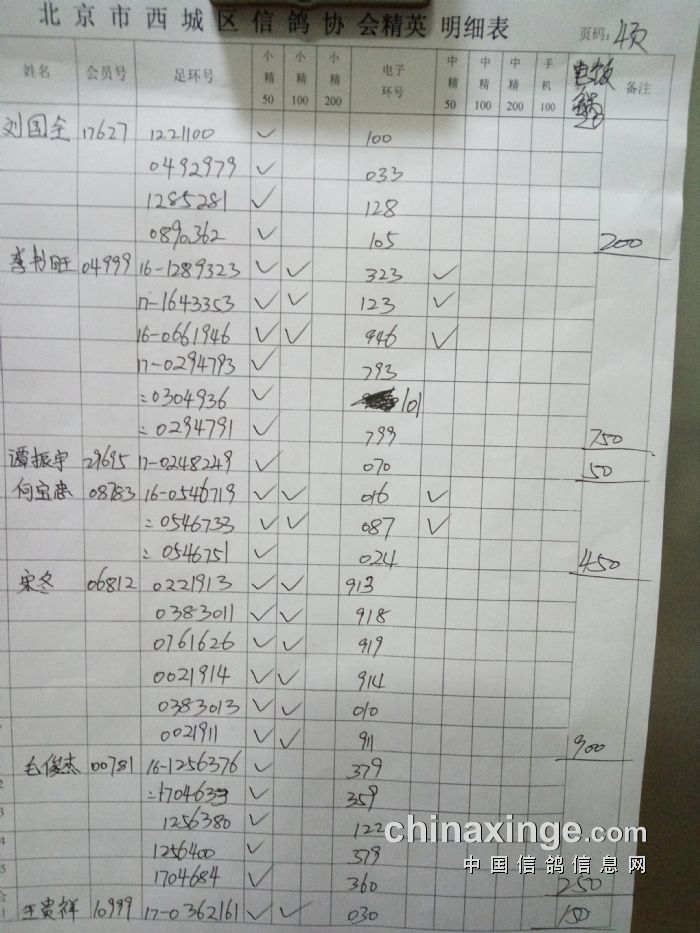 北京市西城区信鸽协会精英 明细表
页码: 4页
姓名 会员号 足环号 小精50 小精100 小精200 电子环号 中精50 中精100 中精200 手机100 备注
刘国全 17627 1221100 ✓ 100
0492979 ✓ 033
1285281 ✓ 128
0890362 ✓ 105 200
李书旺 04999 16-1289323 ✓ ✓ 323 ✓
17-1643353 ✓ ✓ 123 ✓
16-0661946 ✓ ✓ 946 ✓
17-0294793 ✓ 793
:: 0304936 ✓ 101
:: 0294791 ✓ 799 750
谭振宇 29695 17-0248249 ✓ 070 50
何宝 08783 16-0546719 ✓ ✓ 016 ✓
:: 0546733 ✓ ✓ 087 ✓
:: 0546751 ✓ 024 450
宋冬 06812 0221913 ✓ ✓ 913
0383011 ✓ ✓ 918
0761626 ✓ ✓ 919
0021914 ✓ ✓ 914
0383013 ✓ ✓ 010
0021911 ✓ ✓ 911 900
毛俊杰 00781 16-1256376 ✓ 379
1704633 ✓ 359
1256380 ✓ 122
1256400 ✓ 379
1704684 ✓ 360 250
王贵祥 10999 17-0362161 ✓ ✓ 030 150
chinaxinge.com
中国信鸽信息网